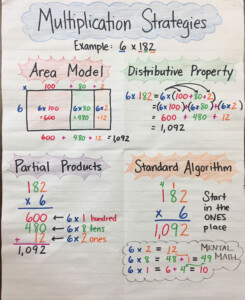 Multiplication Strategies
Example: 6 x 182
Area Model
x 100 + 80 + 2
6 6x100 =600 6x80 =480 6x2 =12
600 + 480 + 12 = 1,092
Distributive Property
6 x 182 = 6x(100+80+2)
=(6x100)+(6x80)+(6x2)
= 600 + 480 + 12
= 1,092
Partial Products
182
x 6
600 ← 6 x 1 hundred
480 ← 6 x 8 tens
+ 12 ← 6 x 2 ones
1,092
Standard Algorithm
4 1
182
x 6
1,092
Start
in the
ONES
place
6 x 2 = 12
6 x 8 = 48 + 1 = 49
6 x 1 = 6 + 4 = 10
MENTAL
MATH